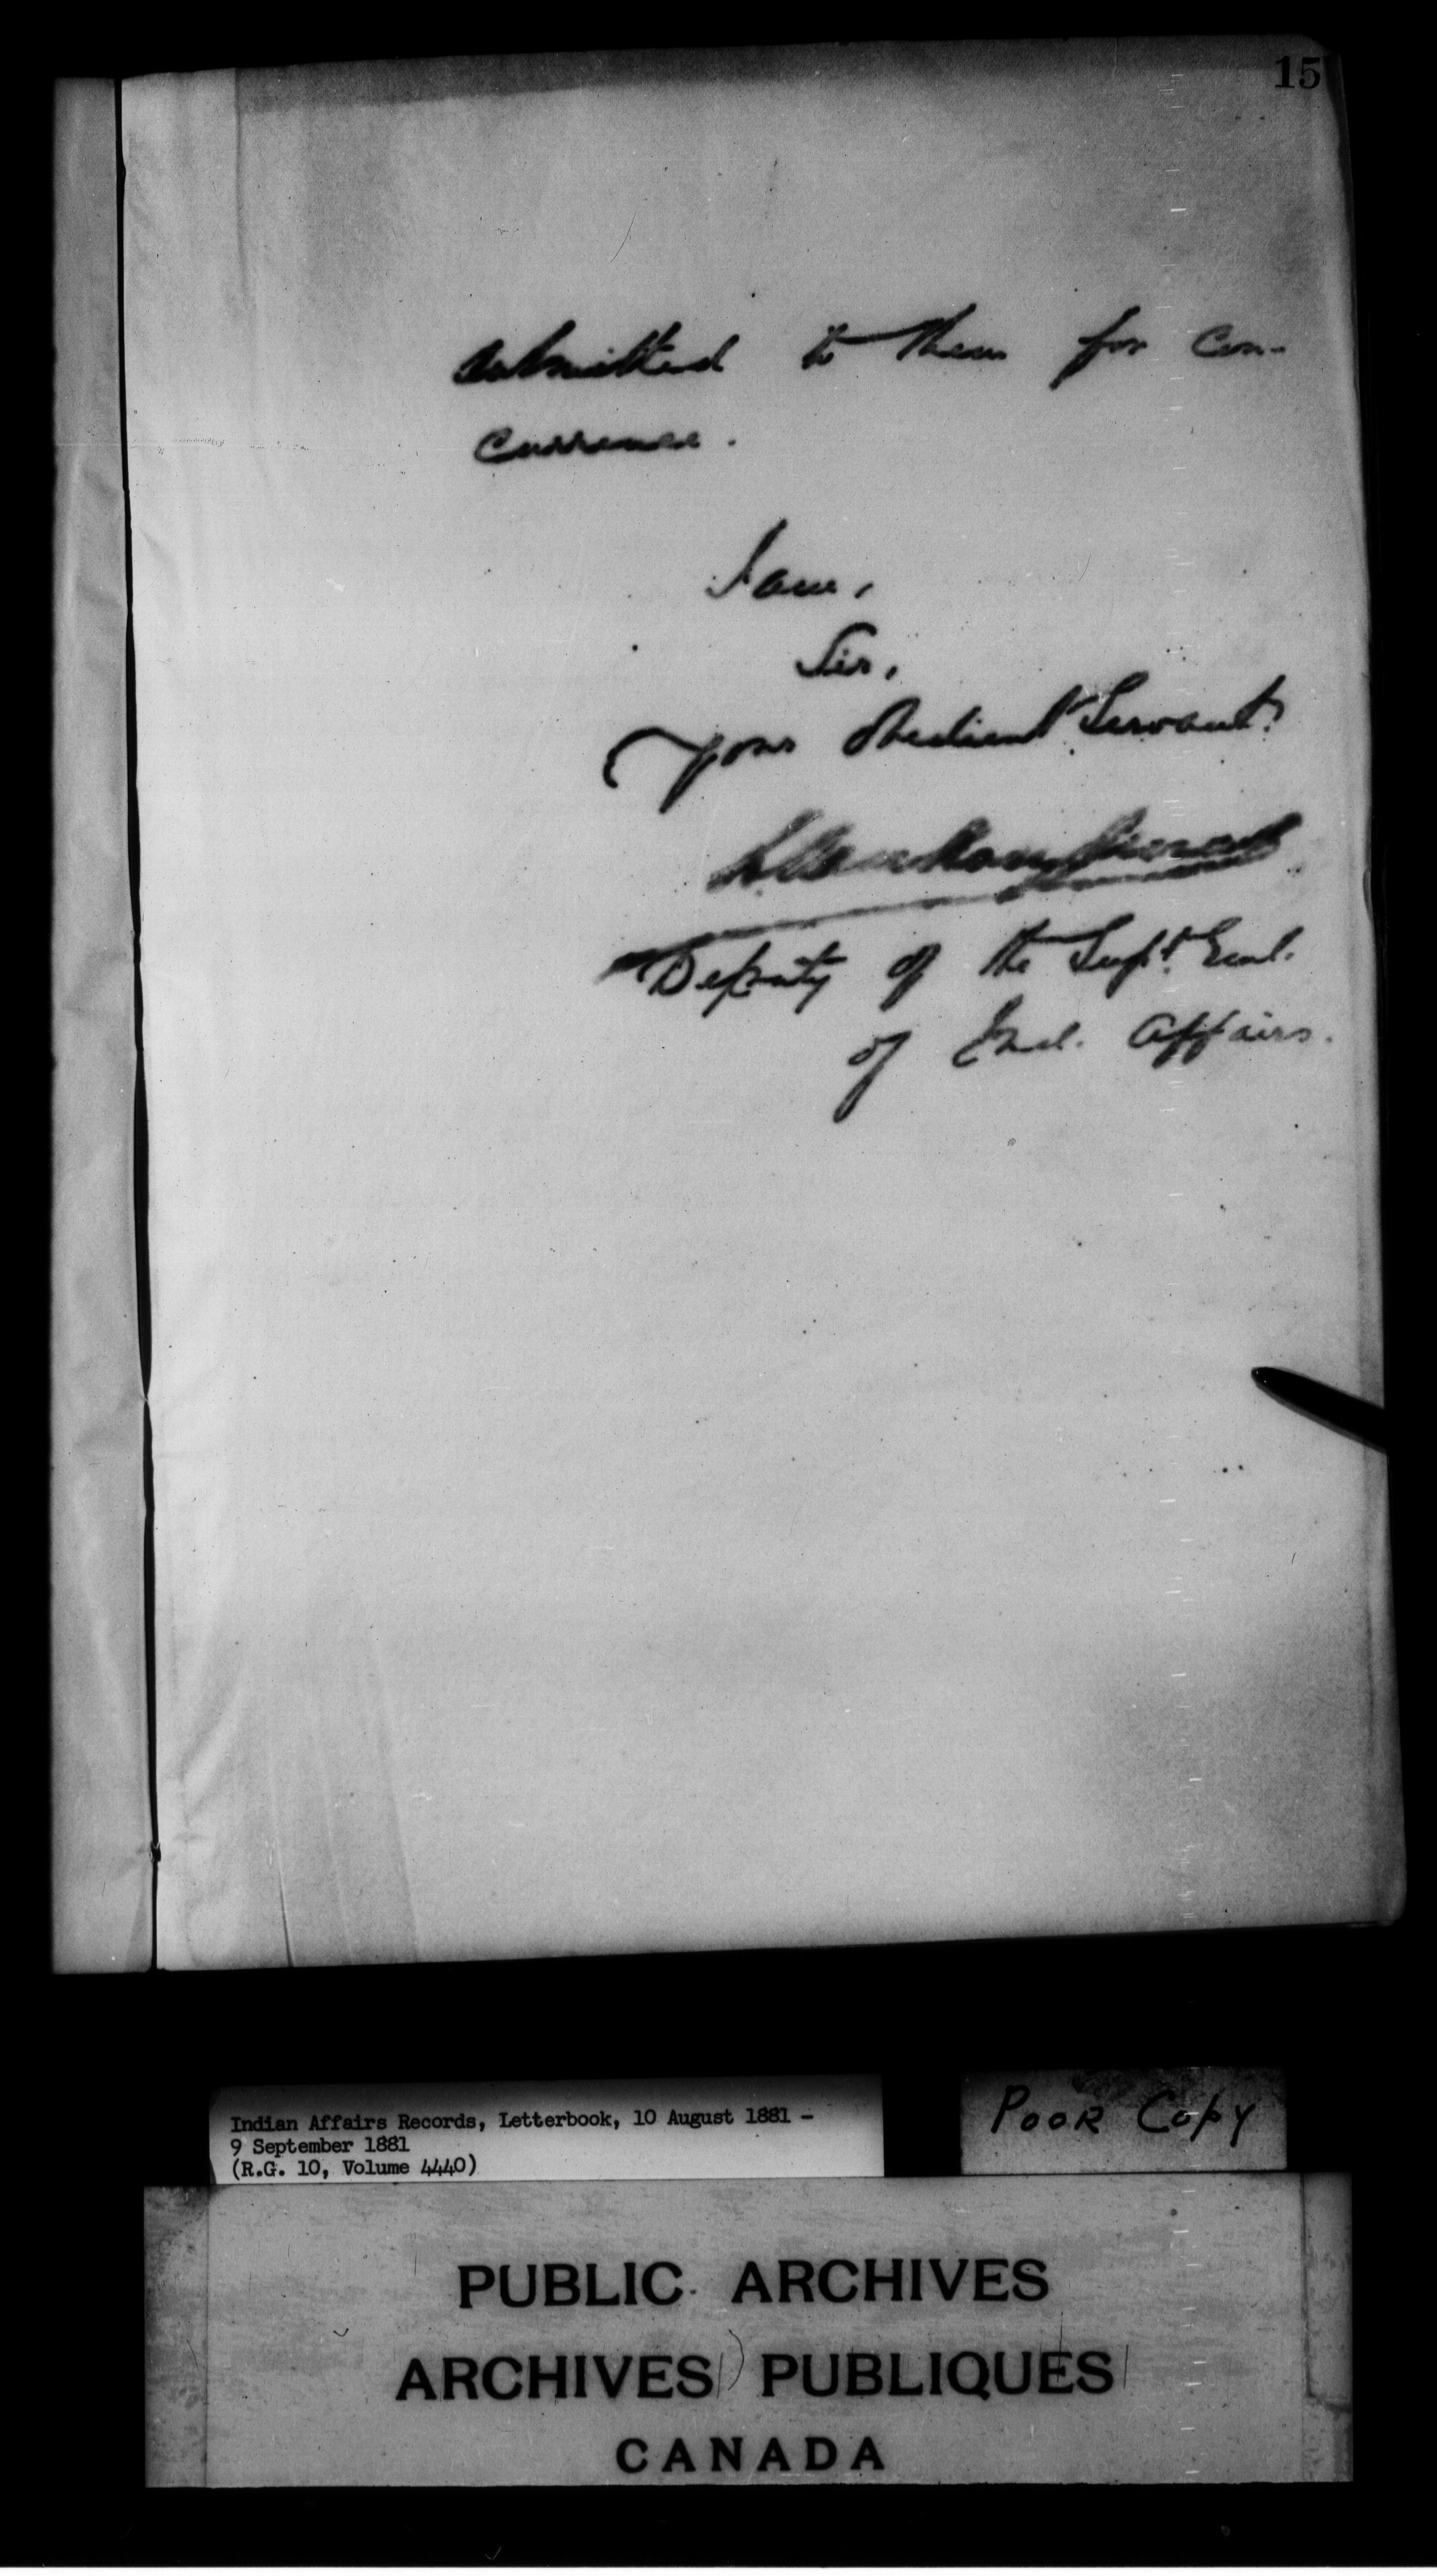 15
submitted to them for con-
currence.
I am,
Sir,
Your Obedient Servant
L Vankoughnet
Deputy of the Supt. Genl.
of Ind. Affairs.
Indian Affairs Records, Letterbook, 10 August 1881 -
9 September 1881
(R.G. 10, Volume 4440)
POOR COPY
PUBLIC ARCHIVES
ARCHIVES PUBLIQUES
CANADA